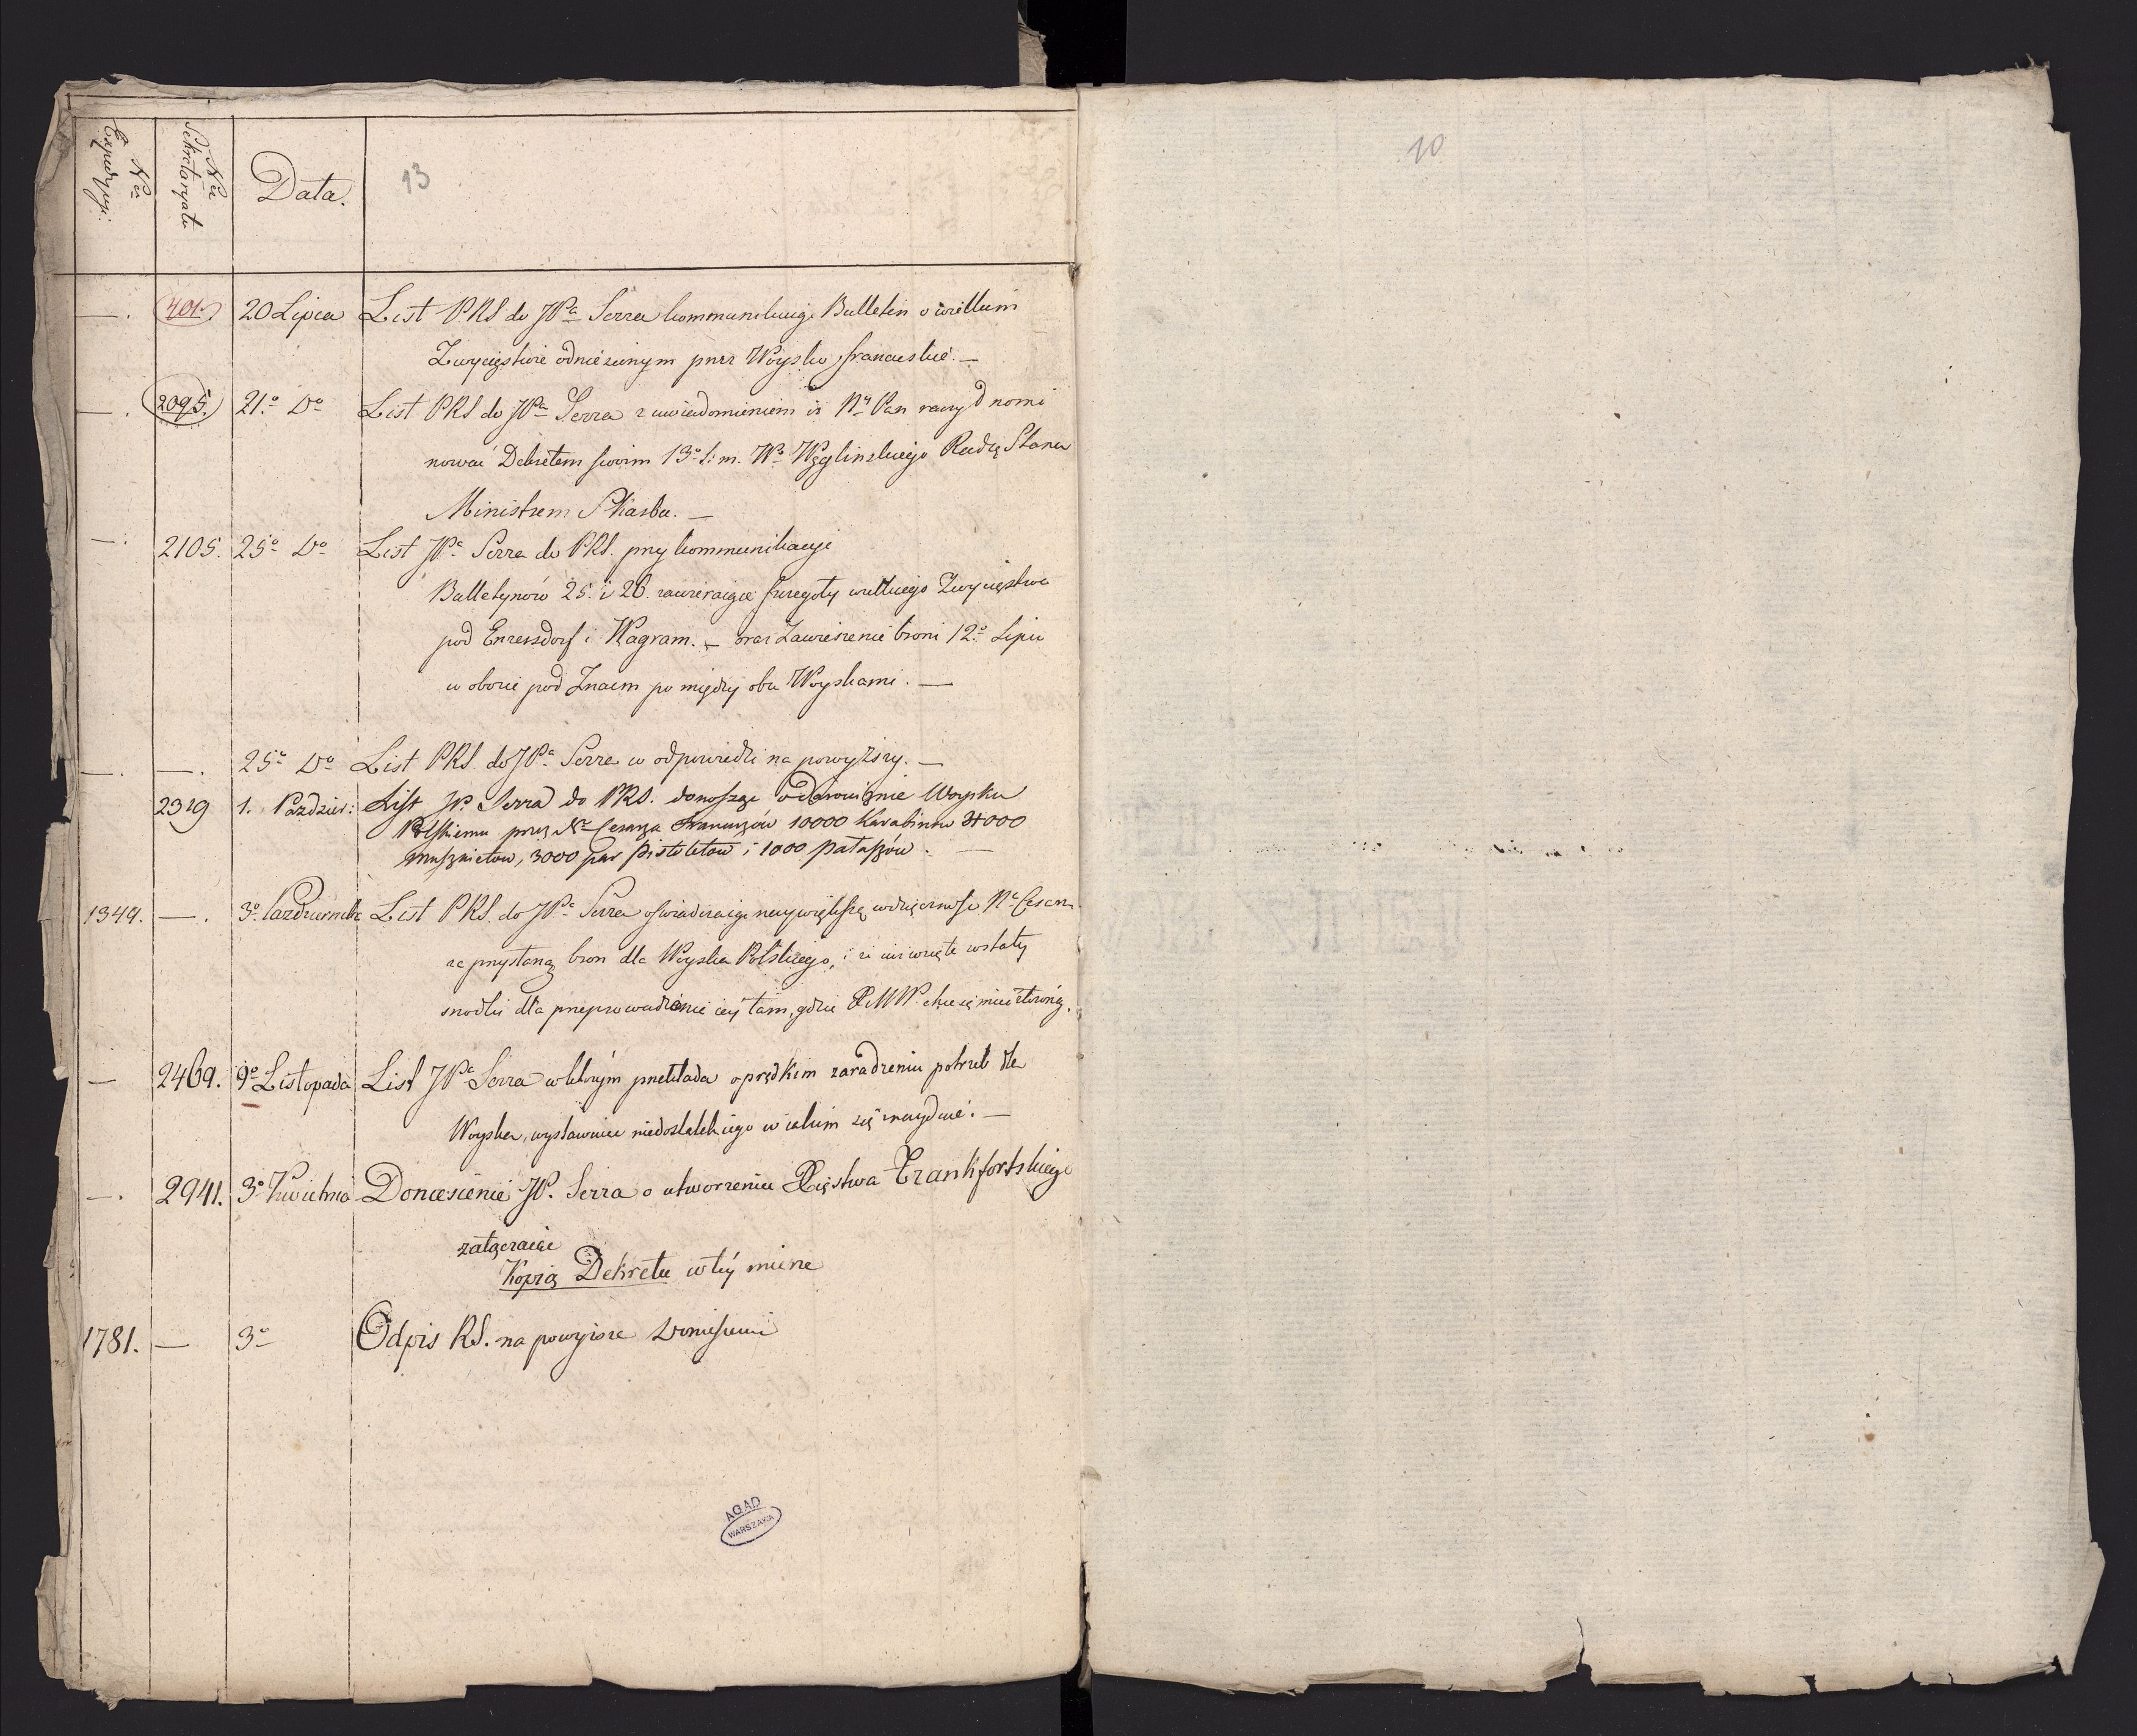 Nro Expedycyi.
Nro Sekretaryatu
Data.
13
10
—. 401. 20 Lipca List P.R.S. do JPa Serra kommunikuiąc Bulletin o wielkim
Zwycięstwie odniesionym przez Woysko francuskie. —
—. 2095. 21.o Do List PRS do JPa Serra z uwiadomieniem iż Ny Pan raczył nomi
nować Dekretem swoim 13o b: m. Wo Węglinskiego Radcę Stanu
Ministrem Skarbu. —
—. 2105. 25o Do List JPa Serra do PRS. przy kommunikacyi
Bulletynów 25. i 26. zawieraiące szczegóły wielkiego Zwycięstwa
pod Enzersdorf i Wagram. — oraz Zawieszenie broni 12o Lipca
w obozie pod Znaim po między obu Woyskami. —
—. —. 25o Do List PRS. do JPa Serra w odpowiedzi na powyższy. —
2319 1. Pazdzier: List JP. Serra do PRS. donosząc o darowiznie Woysku
Polskiemu przez No Cesarza Francuzów 10000 Karabinów 3000
muszkietow, 3000 par pistoletow i 1000 pałaszów. —
1349. —. 3o Pazdziernika List PRS. do JPa Serra oswiadczaiąc naywiększą wdzięcznosc No Cesarz
za przysłaną bron dla Woyska Polskiego, i że iuż wzięte zostały
srodki dla przeprowadzenia iey tam, gdzie X. M W. chce ią mieć złożoną.
— 2469. 9o Listopada List JPa Serra w którym przekłada o prędkim zaradzeniu potrzeb dla
Woyska, wystawuiąc niedostatek iego w iakim się znayduie. —
—. 2941. 3o Kwietnia Doniesienie JP. Serra o utworzeniu Xięstwa Frankfortskiego
załączaiąc
Kopią Dekretu w tey mierze
1781. — 3o Odpis RS. na powyższe Doniesienie
AGAD
WARSZAWA